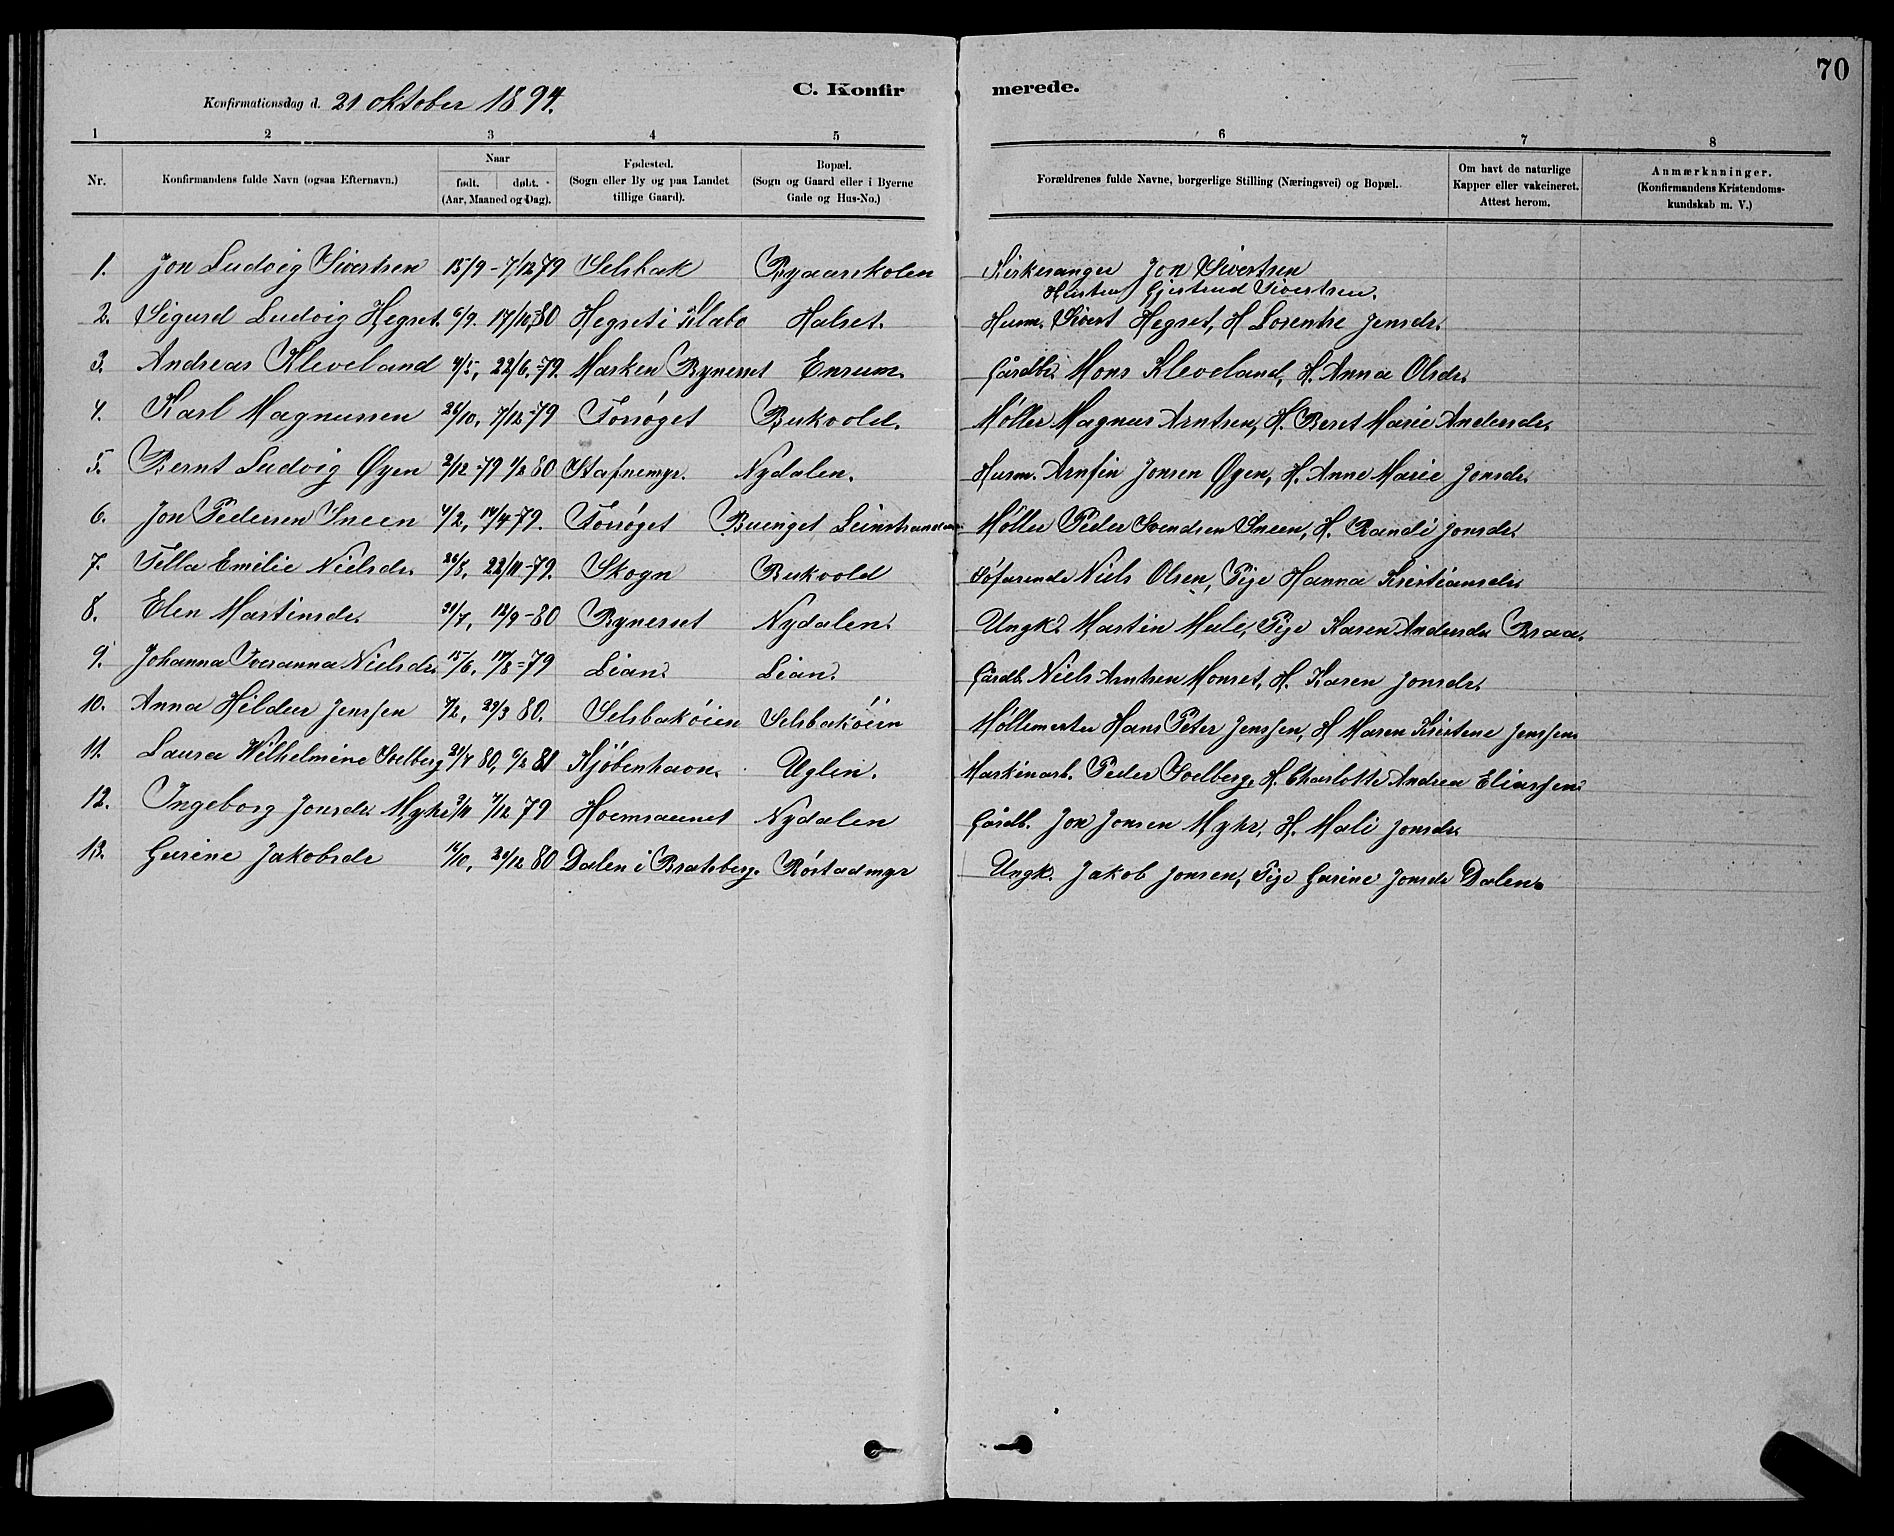 70
Konfirmationsdag d. 21 oktober 1894.
C. Konfirmerede.
1 2 3 4 5 6 7 8
Nr.
Konfirmandens fulde Navn (ogsaa Efternavn.)
Naar
født. døbt.
(Aar, Maaned og Dag).
Fødested.
(Sogn eller By og paa Landet
tillige Gaard).
Bopæl.
(Sogn og Gaard eller i Byerne
Gade og Hus-No.)
Forældrenes fulde Navne, borgerlige Stilling (Næringsvei) og Bopæl.
Om havt de naturlige
Kapper eller vakcineret.
Attest herom.
Anmærknninger.
(Konfirmandens Kristendoms-
kundskab m. V.)
1. Jon Ludvig Sivertsen 15/9 - 7/12 79 Selsbak Byaarskolen Kirkesanger Jon Sivertsen
Hustru Gjertrud Sivertsen.
2. Sigurd Ludvig Hegset. 6/9. 17/10 - 80 Hegset i Klabo Halset. Husm. Sivert Hegset, H Lorentse Jensdr.
3. Andreas Kleveland 4/5, 22/6 - 79. Marken Bynesset Enrum. Gårdbr. Mons Kleveland, H. Anna Olsdr.
4. Karl Magnussen 26/10, 7/12 - 79 Forsøget Bukvold. Møller Magnus Arntsen, H. Beret Marie Andersdr.
5. Bernt Ludvig Øyen 2/12 - 79 1/2 80 Stafnemyr. Nydalen. Husm. Arnfin Jonsen Øyen, H. Anne Marie Jonsdr.
6. Jon Pedersen Sneen 4/2, 14/4 - 79. Forsøget Buenget Leinstranden Møller Peder Svendsen Sneen, H. Randi Jonsdr.
7. Tella Emilie Nielsdr. 26/8, 22/11 - 79. Skogn Bukvold Søfarende Niels Olsen, Pige Hanna Kristiansdr.
8. Elen Martinsdr. 31/7, 12/9 - 80 Bynesset Nydalen. Ungk. Martin Mule, Pige Karen Andersdr Braa.
9. Johanna Iveranna Nielsdr. 15/6, 17/8 = 79 Lian. Lian. Gårdb. Niels Arntsen Monset, H. Karen Jonsdr.
10. Anna Hildur Jenssen 7/2, 29/3 80. Selsbakøien Selsbakøien Møllemester Hans Peter Jenssen, H Maren Kristine Jenssen
11. Laura Wilhelmine Soelberg 21/7 80, 6/2 81 Kjøbenhavn. Uglen. Maskinarb. Peder Soelberg, H. Charlotte Andrea Eliassen.
12. Ingeborg Jonsdr Myhr 2/11 7/12 79 Hoemsaunet Nydalen Gårdb. Jon Jonsen Myhr, H. Mali Jonsdr.
13. Gurine Jakobsdr 14/10, 26/12 80 Dalen i Bratsberg. Røstadmyr Ungk. Jakob Jonsen, Pige Gurine Jonsdr Dalen.